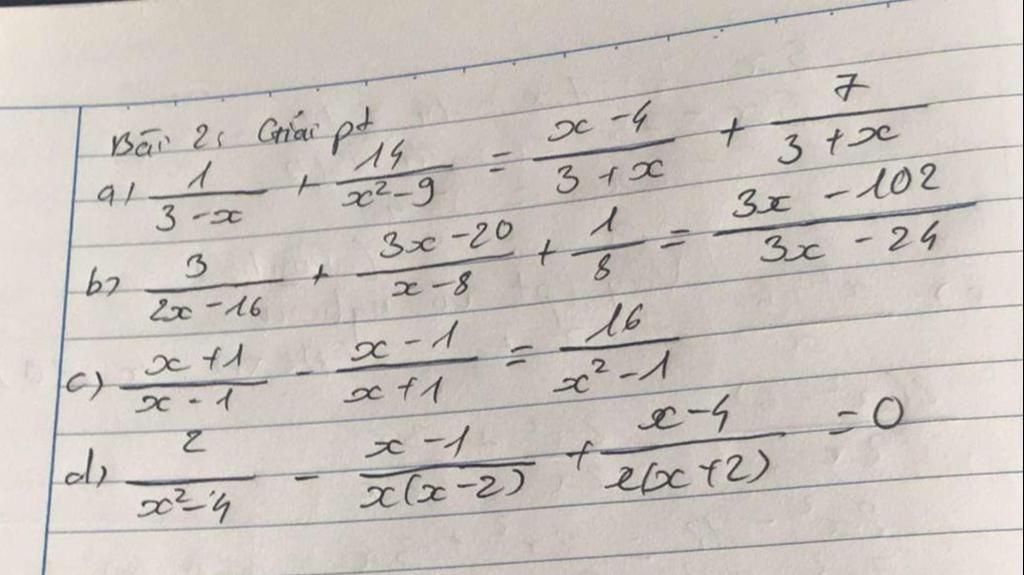 Bài 2: Giải pt
a) 1/(3-x) + 14/(x²-9) = (x-4)/(3+x) + 7/(3+x)
b) 3/(2x-16) + (3x-20)/(x-8) + 1/8 = (3x-102)/(3x-24)
c) (x+1)/(x-1) - (x-1)/(x+1) = 16/(x²-1)
d) 2/(x²-4) - (x-1)/(x(x-2)) + (x-4)/(2(x+2)) = 0